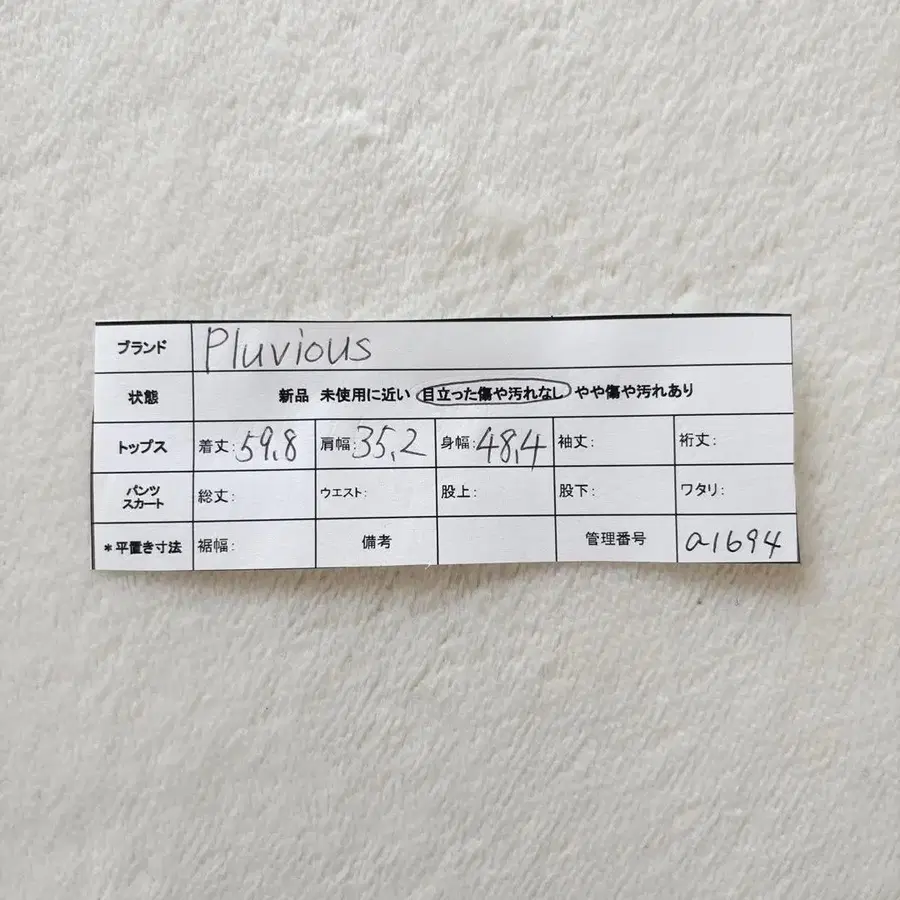 ブランド Pluvious
状態 新品 未使用に近い 目立った傷や汚れなし やや傷や汚れあり
トップス 着丈:59.8 肩幅:35.2 身幅:48.4 袖丈: 裄丈:
パンツ スカート 総丈: ウエスト: 股上: 股下: ワタリ:
*平置き寸法 裾幅: 備考 管理番号 a1694